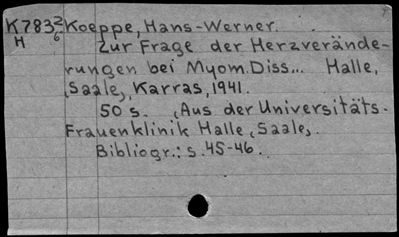 K783 2/6 Koeppe, Hans-Werner.
H Zur Frage der Herzverände-
rungen bei Myom. Diss... Halle,
(Saale), Karras, 1941.
50 s. (Aus der Universitäts-
Frauenklinik Halle (Saale).
Bibliogr.: s. 45-46.